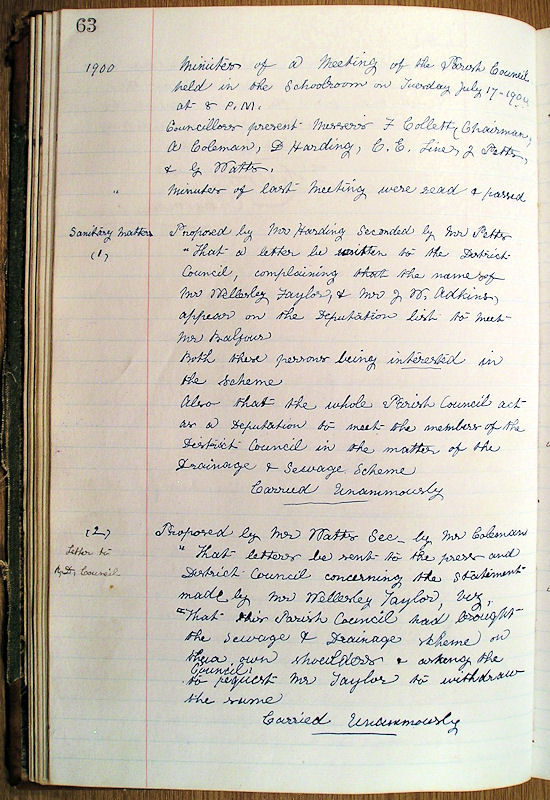 63
1900
Minutes of a Meeting of the Parish Council
held in the Schoolroom on Tuesday July 17-1900
at 8 P.M.
Councillors present Messers F Collett, Chairman,
A Coleman, D Harding, C. E. Line, J Petts,
& G Watts.
"
Minutes of last Meeting were read & passed
Sanitary Matters
(1)
Proposed by Mr Harding Seconded by Mr Petts
"That a letter be written to the District
Council, complaining that the name of
Mr Wellersley Taylor, & Mr J W. Adkins,
appear on the Deputation list to meet
Mr Balfour
Both these persons being interested in
the scheme
Also that the whole Parish Council act
as a Deputation to meet the members of the
District Council in the matter of the
Drainage & Sewage Scheme
Carried Unanimously
(2)
Letter to
R.D. Council
Proposed by Mr Watts Sec_ by Mr Coleman
"That letters be sent to the press and
District Council concerning the Statement
made by Mr Wellersley Taylor, viz,
"That this Parish Council had brought
the Sewage & Drainage scheme on
their own shoulders & asking the
Council
to request Mr Taylor to withdraw
the same
Carried Unanimously